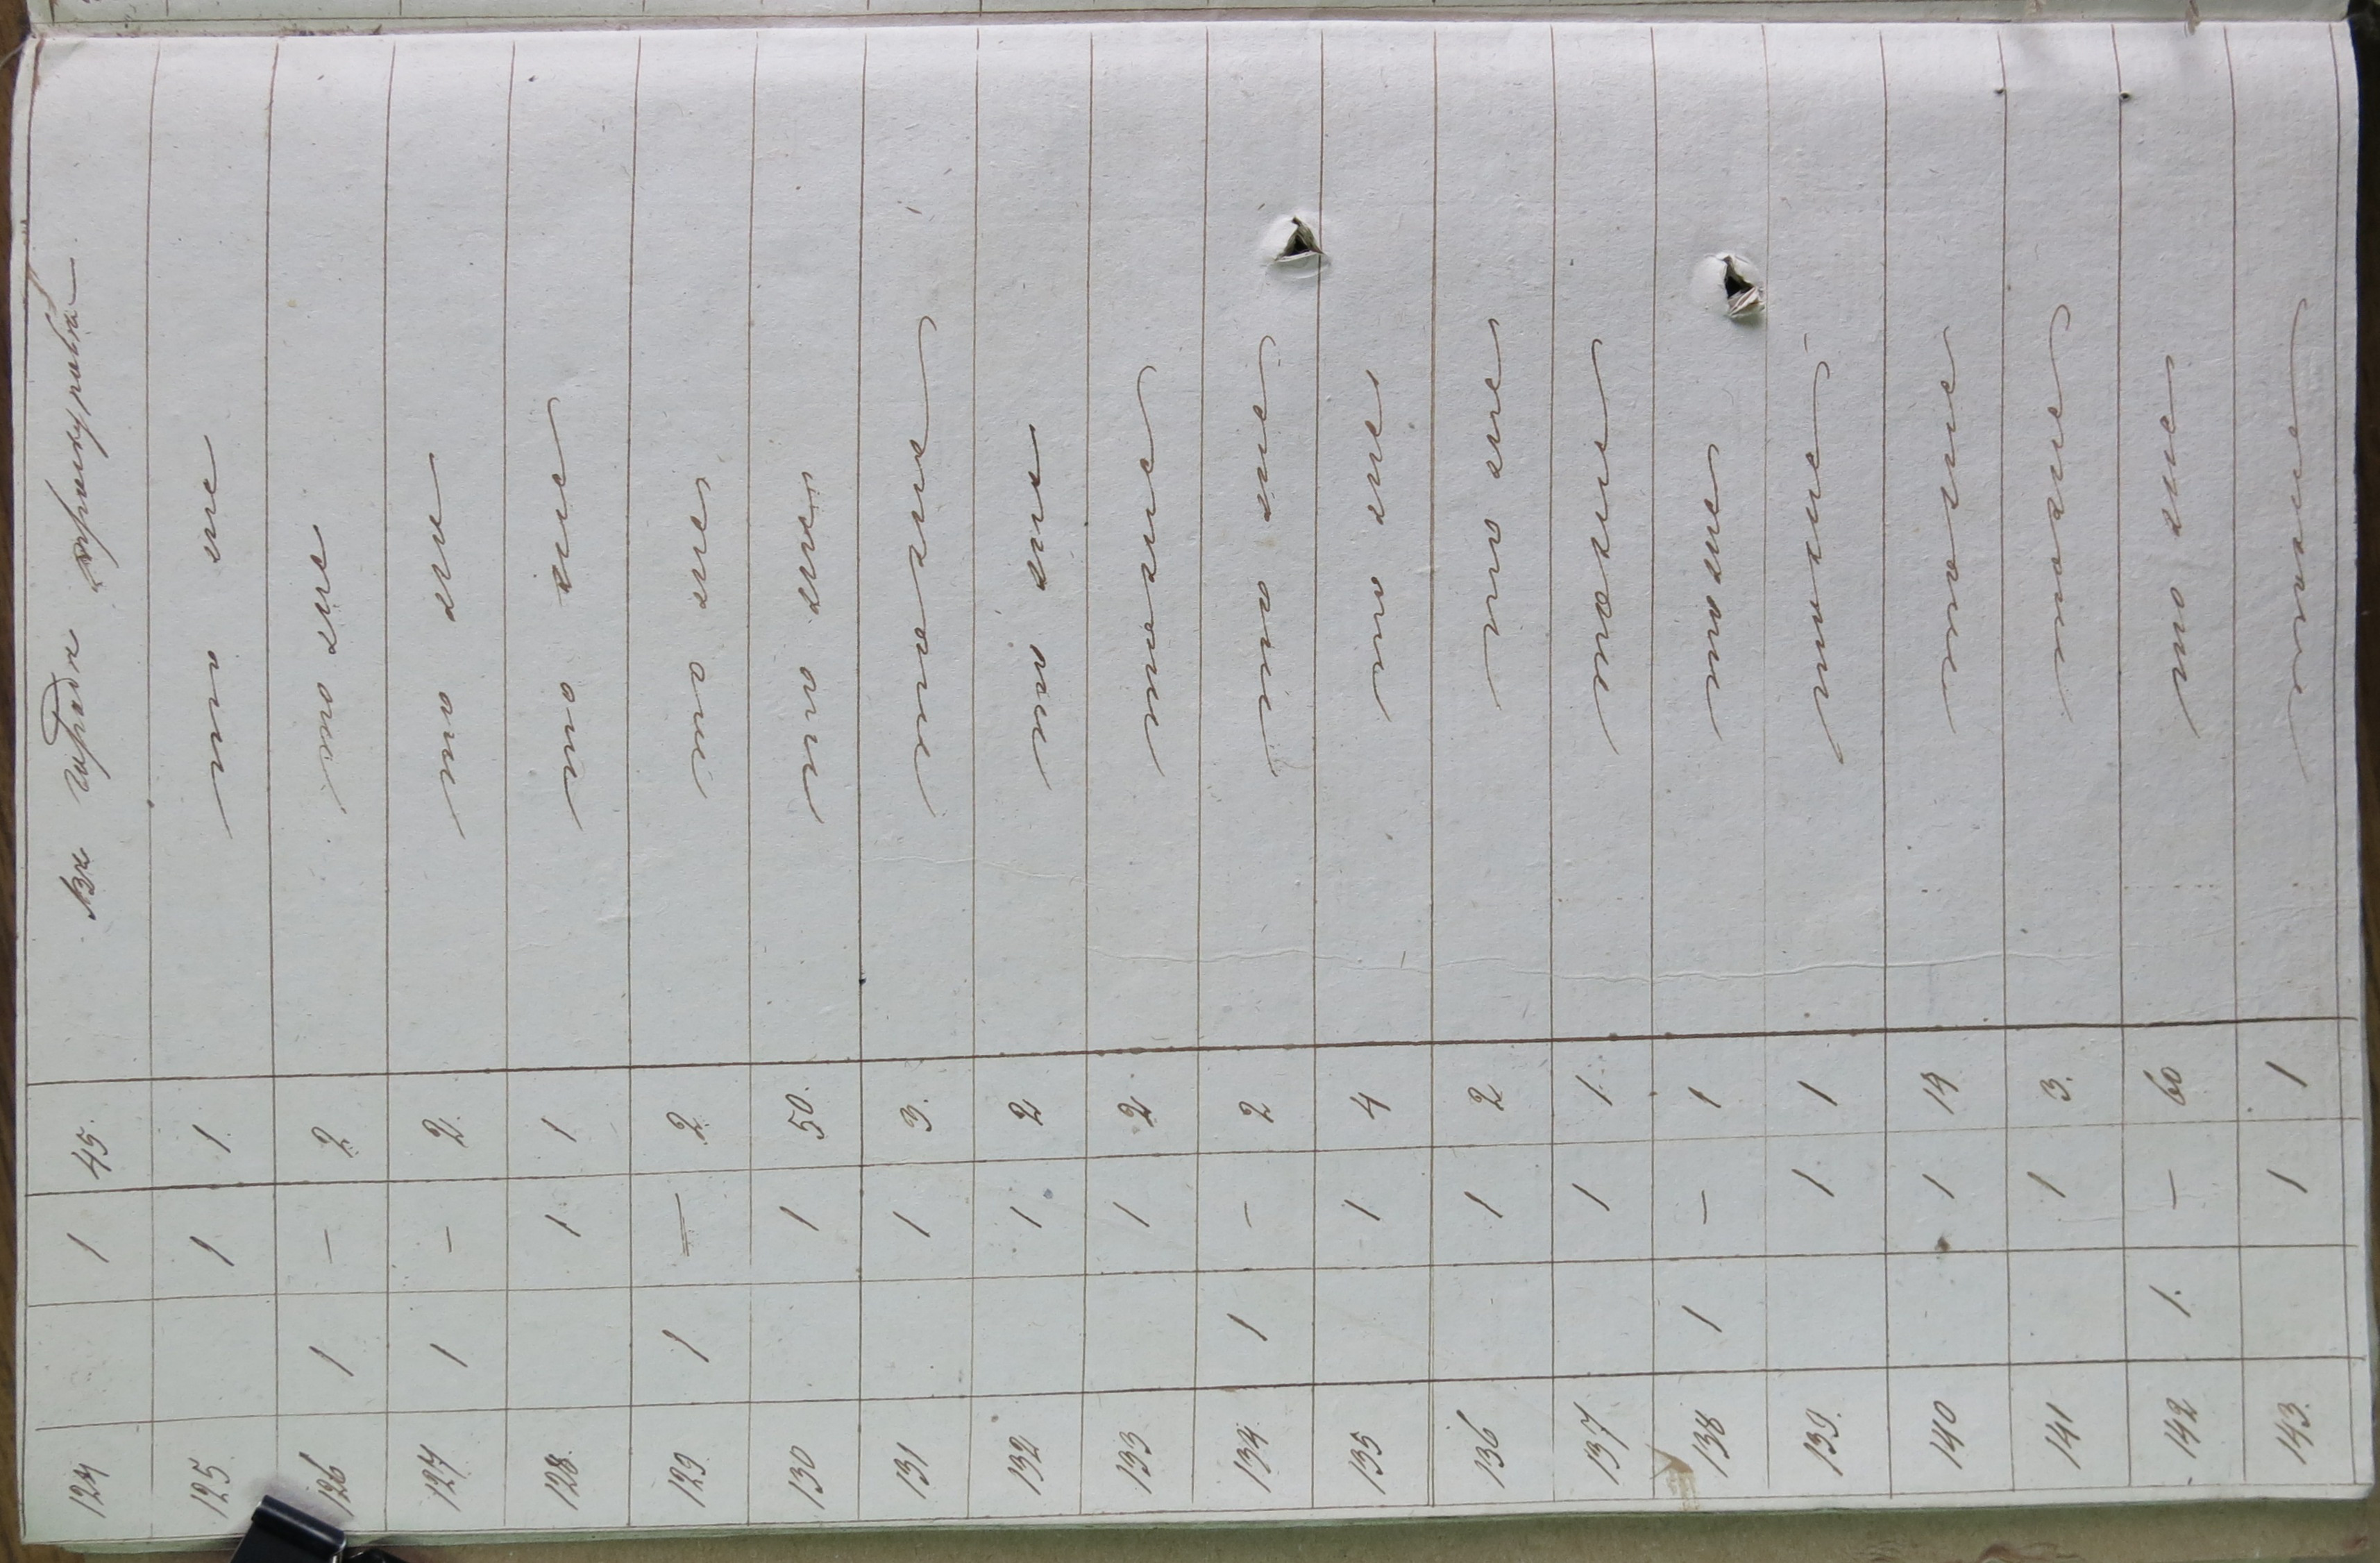 124 1 45. Въ городѣ Оренбургѣ
125. 1 1. то же
126 1 — 2. тоже
127 1 — 2. тоже
128. 1 1 тоже
129. 1 — 2. тоже
130 1 50. тоже
131 1 3. тоже
132 1. 2 тоже
133 1 2 тоже
134. 1 — 2 тоже
135 1 4 тоже
136 1 2 тоже
137 1 1. тоже
138 1 — 1 тоже
139. 1. 1 тоже
140 1 19 тоже
141 1 3. тоже
142 1. — 60 тоже
143. 1 1 тоже